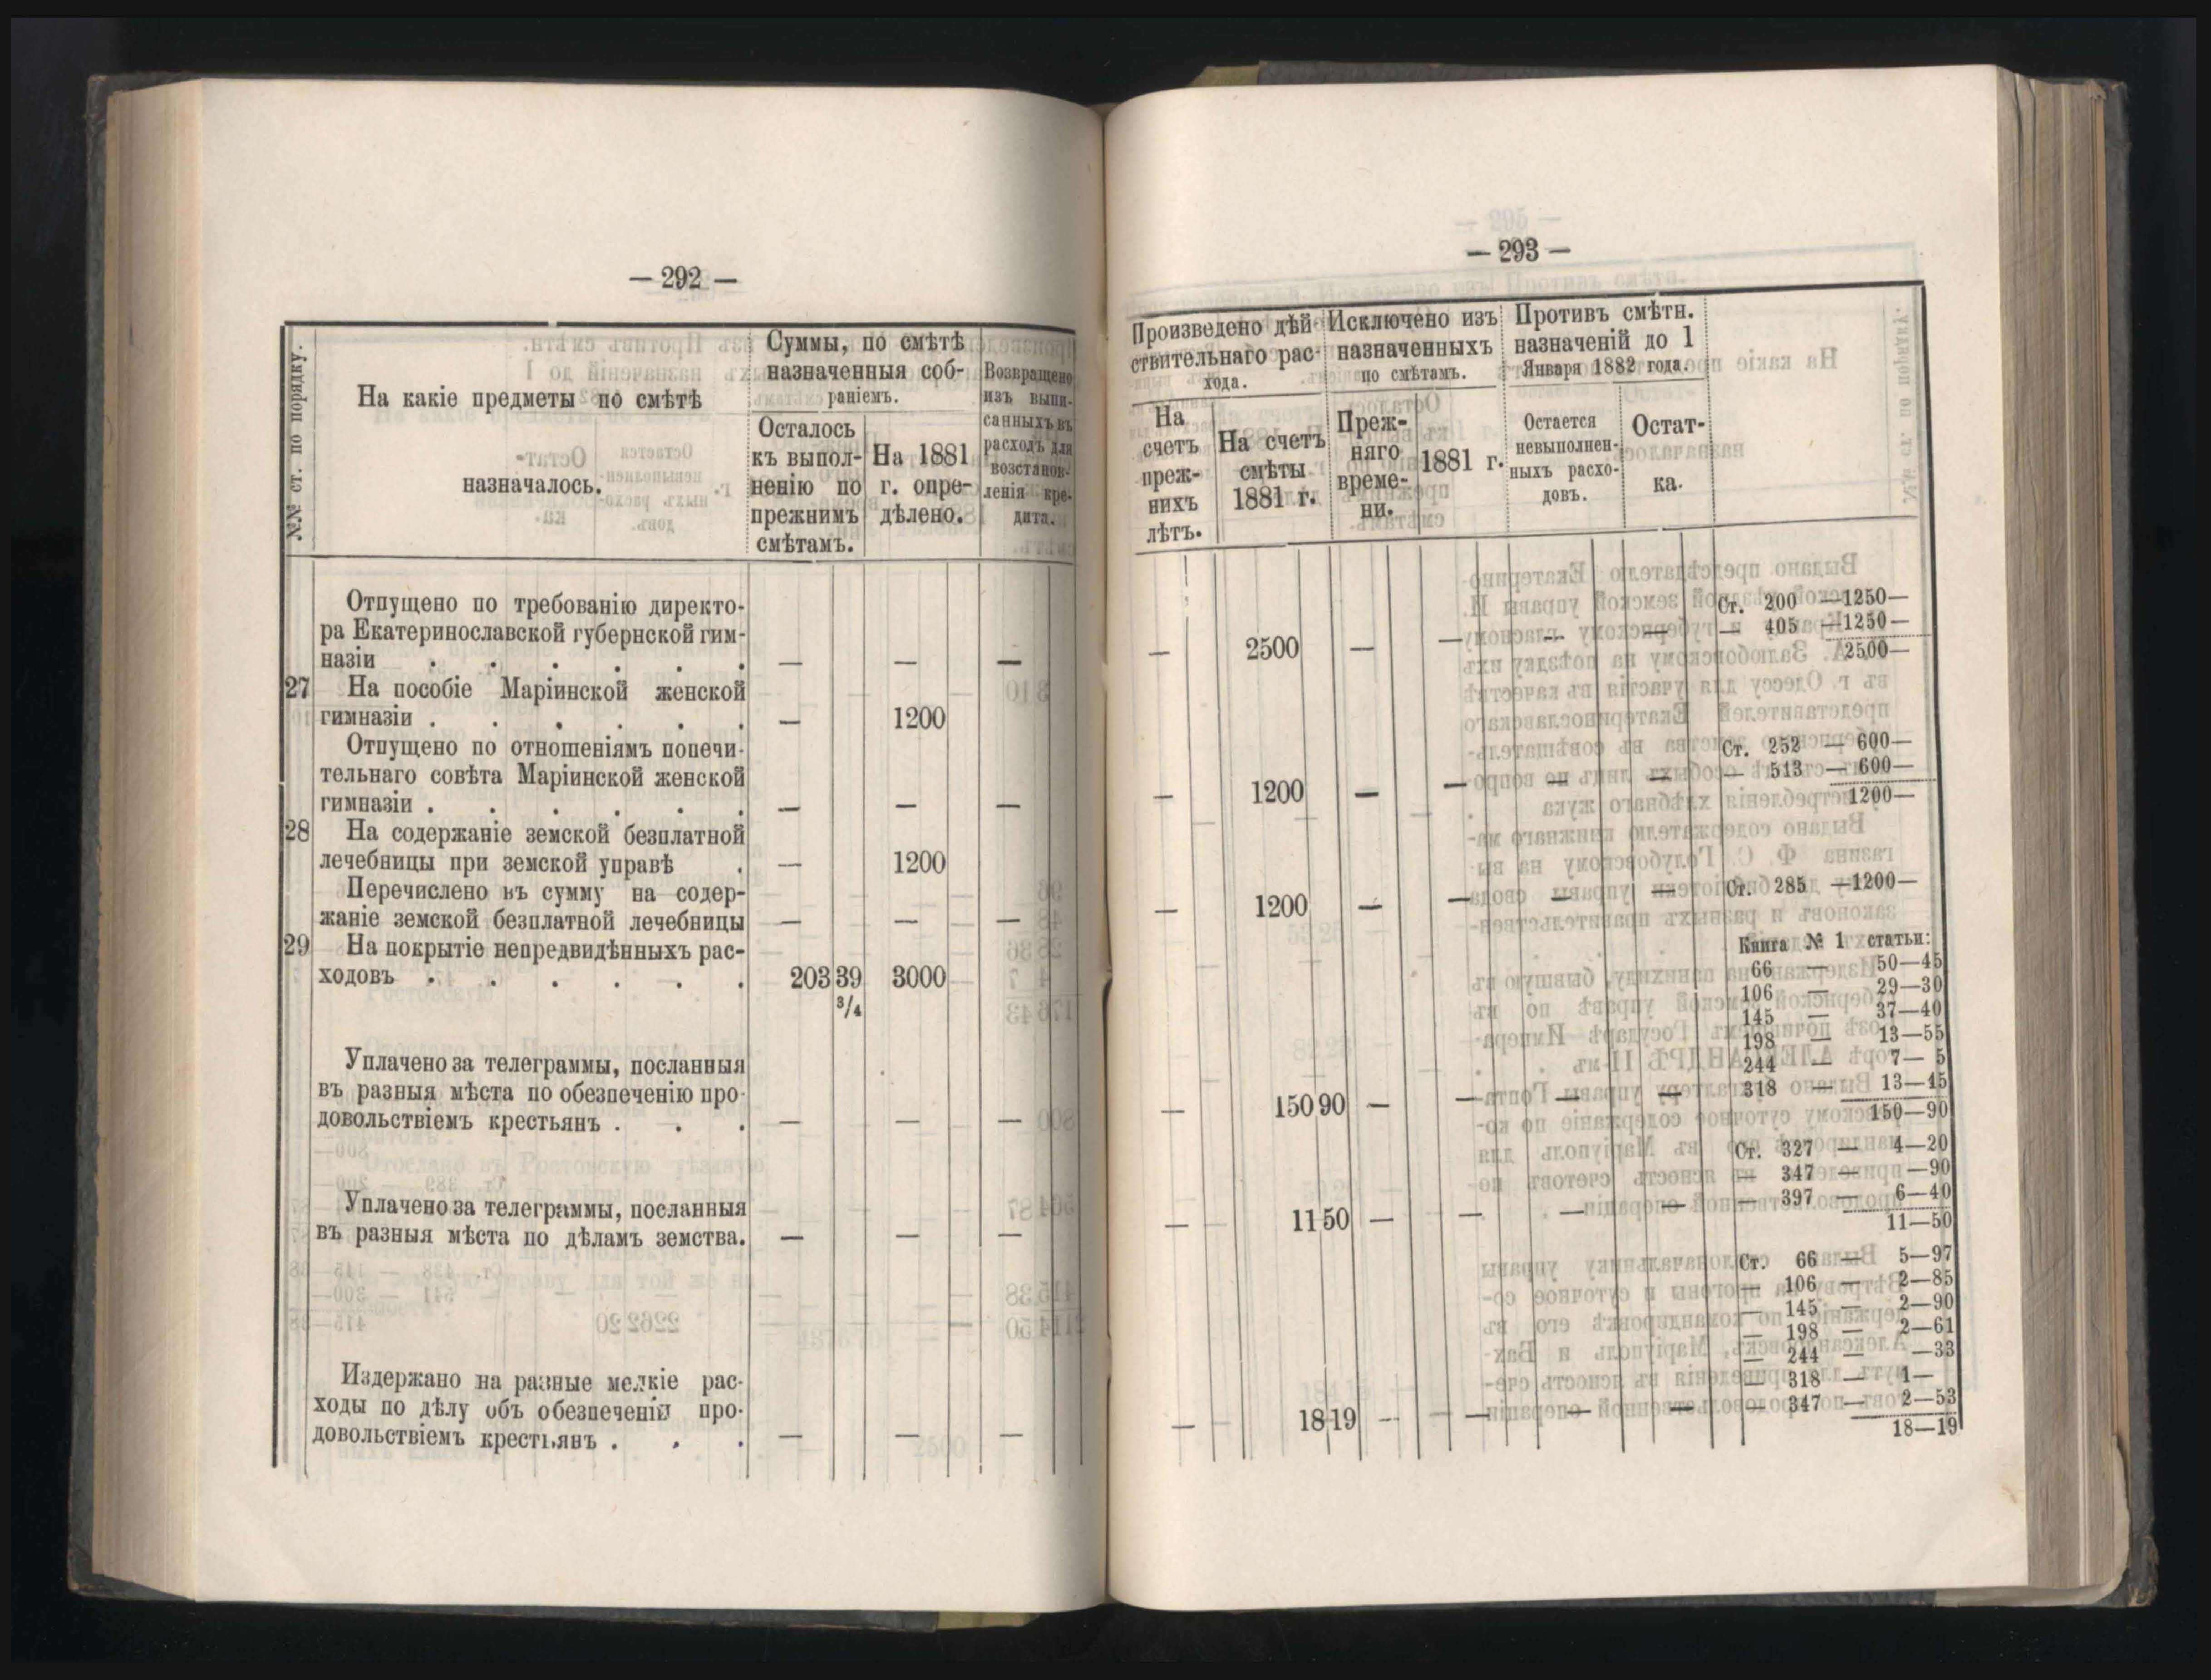 — 292 —
№№ ст. по порядку.
На какіе предметы по смѣтѣ
назначалось.
Суммы, по смѣтѣ
назначенныя соб-
раніемъ.
Осталось
къ выпол-
ненію по
прежнимъ
смѣтамъ.
На 1881
г. опре-
дѣлено.
Возвращено
изъ выпи-
санныхъ въ
расходъ для
возстанов-
ленія кре-
дита.
Отпущено по требованію директо-
ра Екатеринославской губернской гим-
назіи . . . . . . — — —
27 На пособіе Маріинской женской
гимназіи . . . . . . — 1200
Отпущено по отношеніямъ попечи-
тельнаго совѣта Маріинской женской
гимназіи . . . . . . — — —
28 На содержаніе земской безплатной
лечебницы при земской управѣ . — 1200
Перечислено въ сумму на содер-
жаніе земской безплатной лечебницы — — —
29 На покрытіе непредвидѣнныхъ рас-
ходовъ . . . . . . 203 39 3000
3/4
Уплачено за телеграммы, посланныя
въ разныя мѣста по обезпеченію про-
довольствіемъ крестьянъ . . . — — —
Уплачено за телеграммы, посланныя
въ разныя мѣста по дѣламъ земства. — — —
Издержано на разные мелкіе рас-
ходы по дѣлу объ обезпеченіи про-
довольствіемъ крестьянъ . . . — — —
— 293 —
Произведено дѣй-
ствительнаго рас-
хода.
Исключено изъ
назначенныхъ
по смѣтамъ.
Противъ смѣтн.
назначеній до 1
Января 1882 года.
На
счетъ
преж-
нихъ
лѣтъ.
На счетъ
смѣты
1881 г.
Преж-
няго
време-
ни.
1881 г.
Остается
невыполнен-
ныхъ расхо-
довъ.
Остат-
ка.
Ст. 200 —1250—
— 405 —1250—
— 2500 — — — — 2500—
Ст. 252 — 600—
— 513 — 600—
— 1200 — — — — 1200—
— 1200 — — — — Ст. 285 —1200—
Книга № 1 статьи:
66 — 50—45
106 — 29—30
145 — 37—40
198 — 13—55
244 — 7— 5
318 — 13—15
— 150 90 — — — — 150—90
Ст. 327 — 4—20
— 347 — —90
— 397 — 6—40
— 11 50 — — — — 11—50
Ст. 66 — 5—97
— 106 — 2—85
— 145 — 2—90
— 198 — 2—61
— 244 — —33
— 318 — 1—
— 347 — 2—53
— 18 19 — — — — 18—19